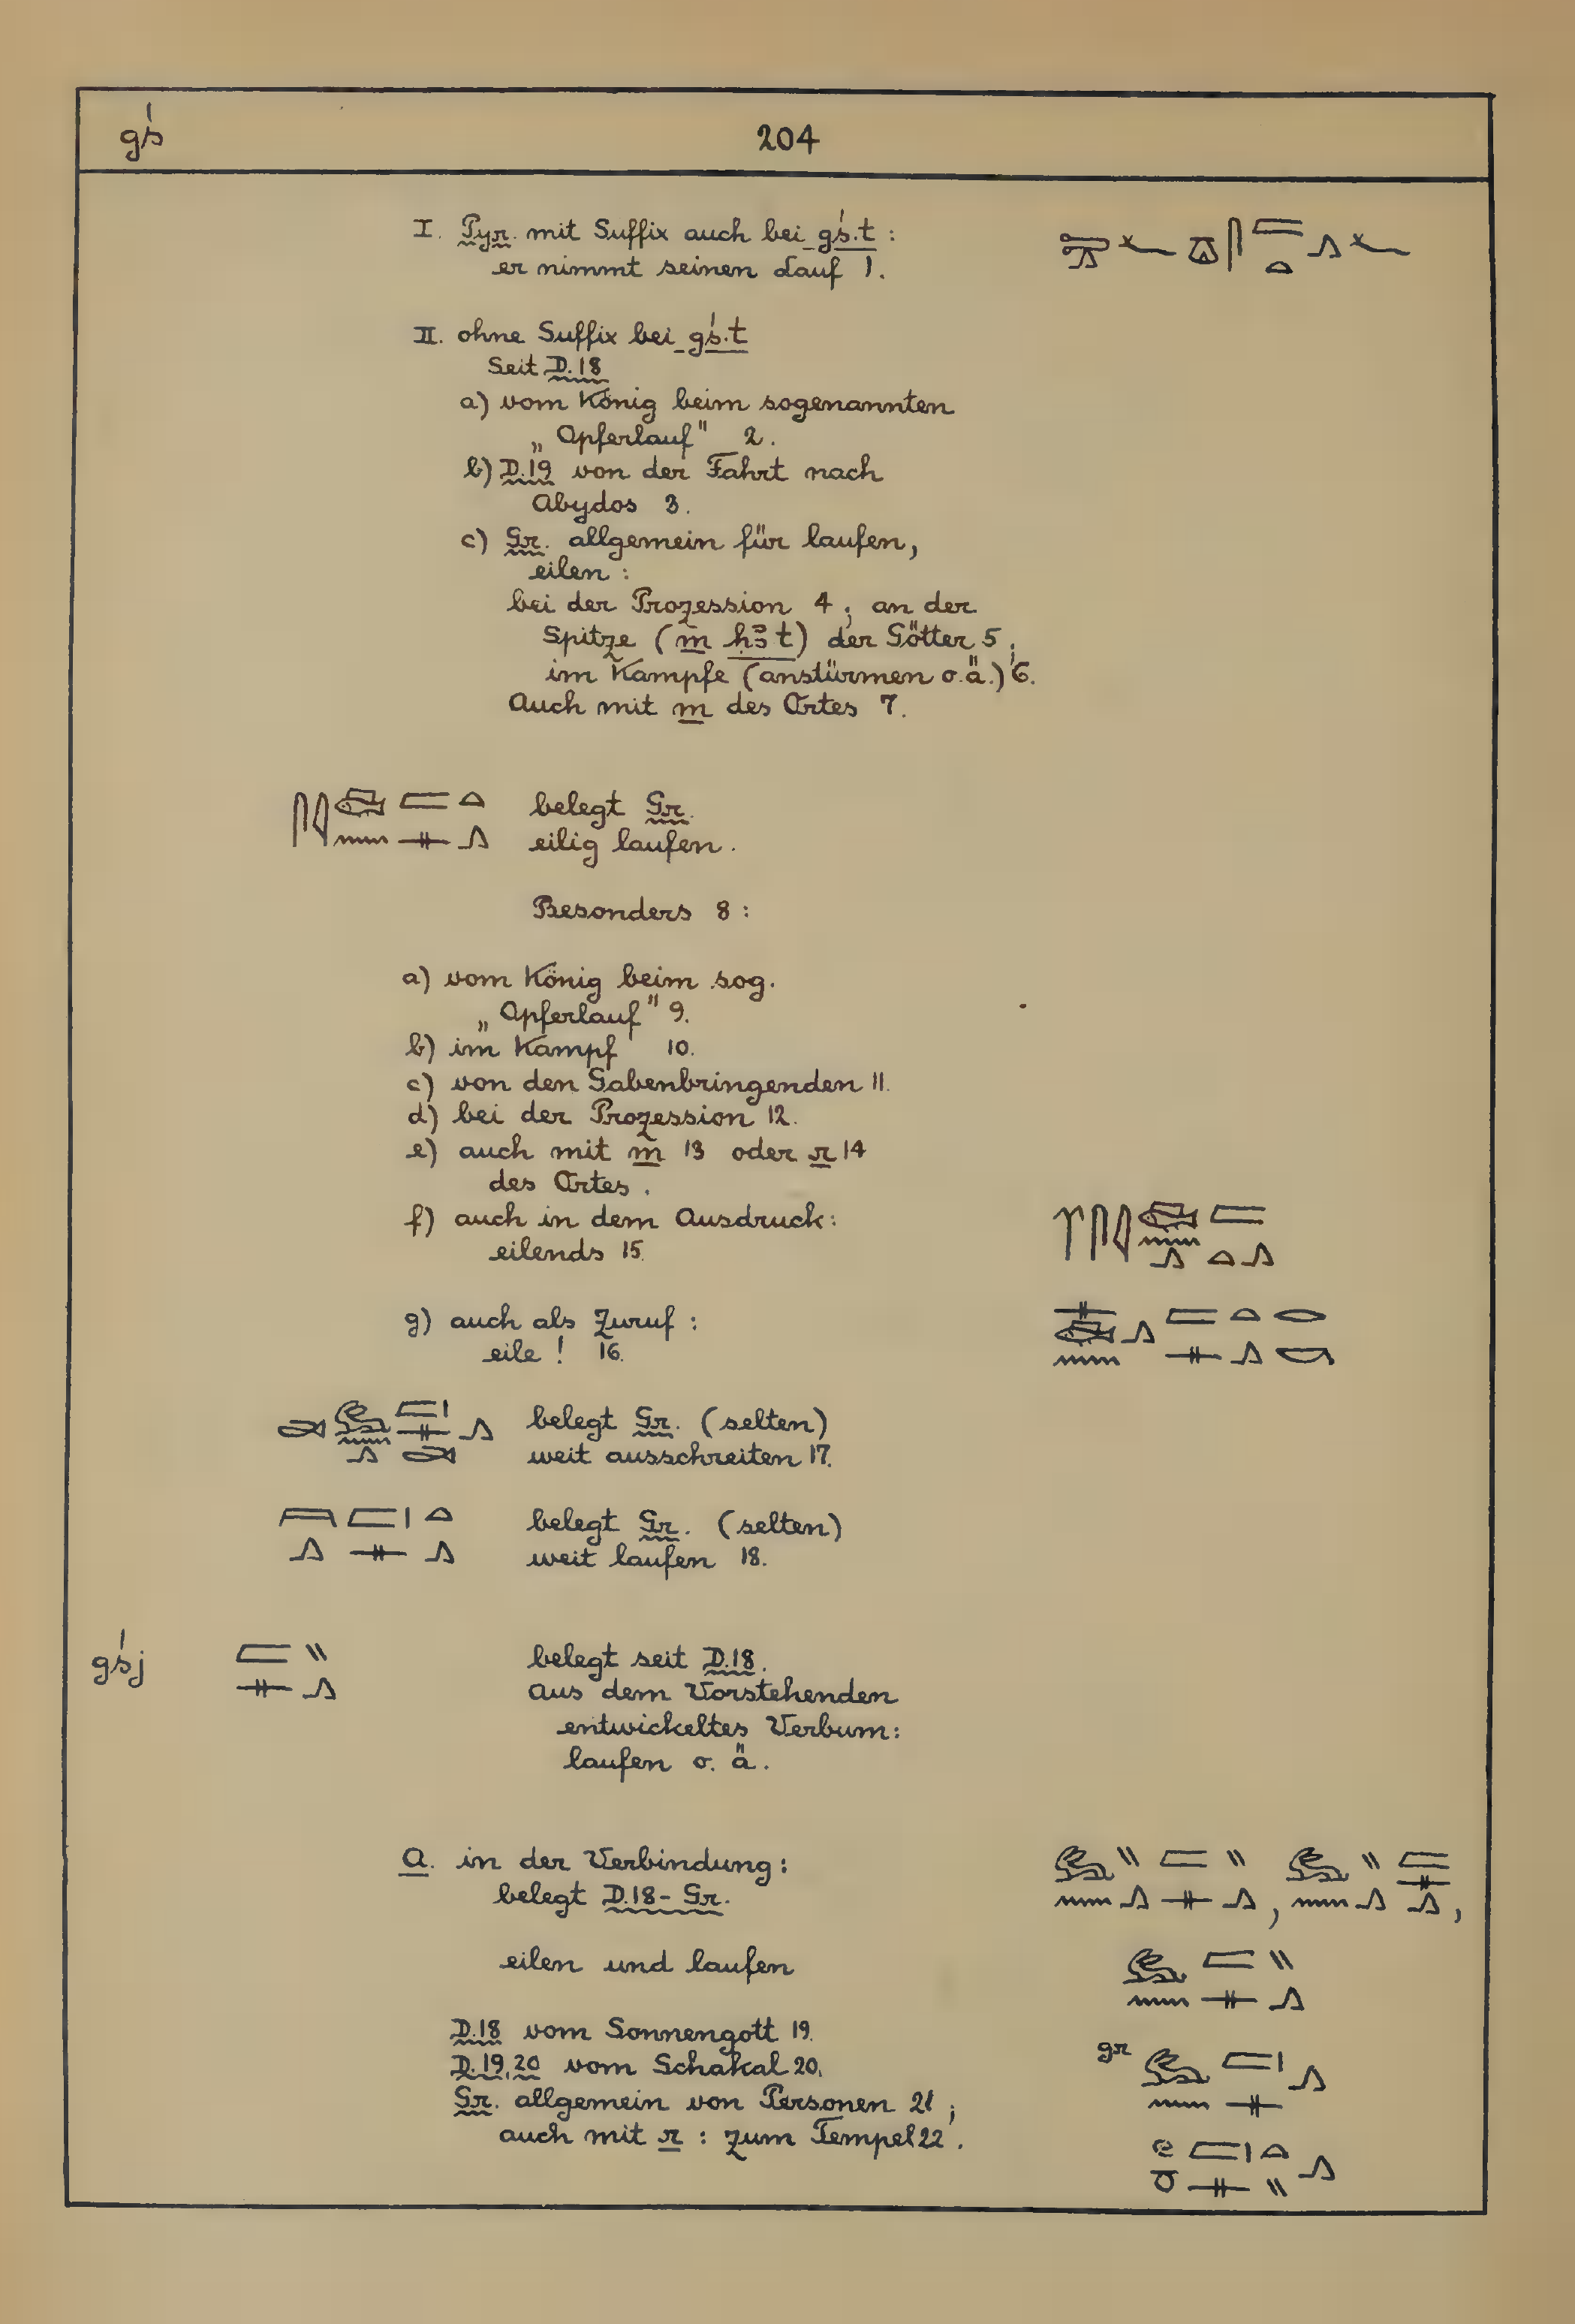 gś
204
I. Pyr. mit Suffix auch bei gś.t :
er nimmt seinen Lauf 1.
II. ohne Suffix bei gś.t
Seit D.18
a) vom König beim sogenannten
„Opferlauf" 2.
b) D.19 von der Fahrt nach
Abydos 3.
c) Gr. allgemein für laufen,
eilen :
bei der Prozession 4 ; an der
Spitze (m ḥꜣt) der Götter 5 ;
im Kampfe (anstürmen o.ä.) 6.
Auch mit m des Ortes 7.
belegt Gr.
eilig laufen.
Besonders 8 :
a) vom König beim sog.
„Opferlauf" 9.
b) im Kampf 10.
c) von den Gabenbringenden 11.
d) bei der Prozession 12.
e) auch mit m 13 oder r 14
des Ortes.
f) auch in dem Ausdruck:
eilends 15.
g) auch als Zuruf :
eile ! 16.
belegt Gr. (selten)
weit ausschreiten 17.
belegt Gr. (selten)
weit laufen 18.
gśj
belegt seit D.18.
aus dem Vorstehenden
entwickeltes Verbum:
laufen o. ä.
A. in der Verbindung:
belegt D.18 - Gr.
eilen und laufen
D.18 vom Sonnengott 19.
D.19,20 vom Schakal 20.
gr
Gr. allgemein von Personen 21 ;
auch mit r : zum Tempel 22.